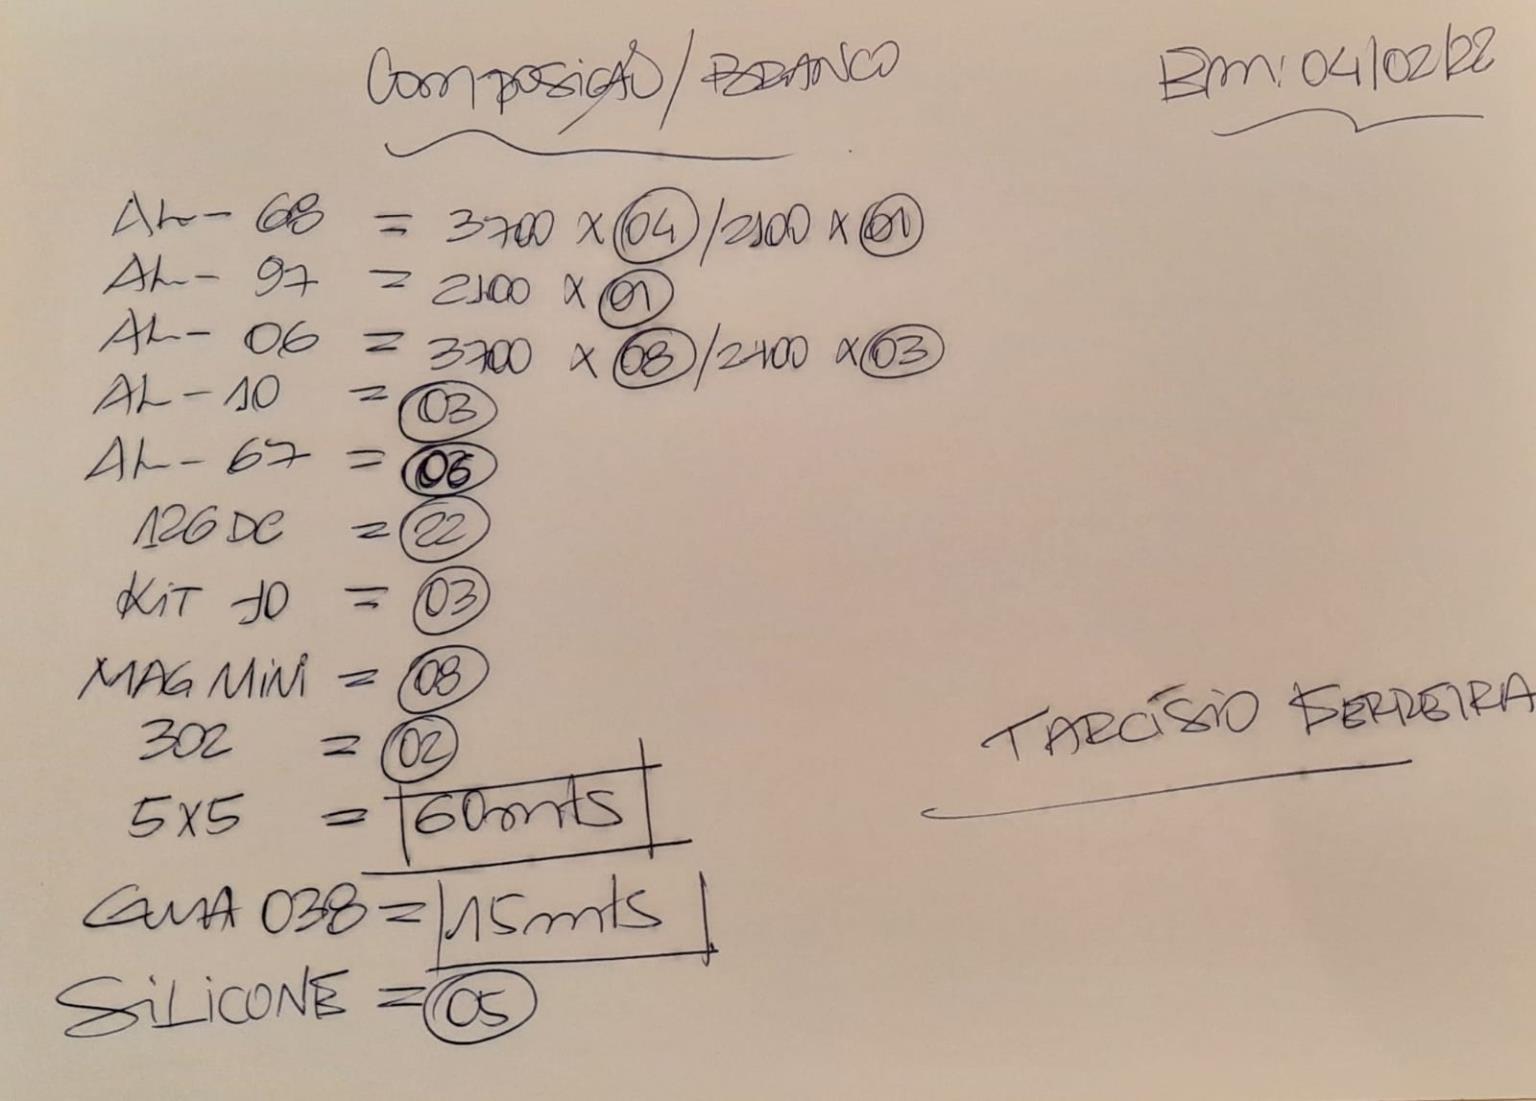 Composição / BRANCO
Bm: 04/02/22
AL- 68 = 3700 x 04 / 2100 x 01
AL- 97 = 2100 x 01
AL- 06 = 3700 x 08 / 2100 x 03
AL- 10 = 03
AL- 67 = 06
126 DC = 22
KiT 10 = 03
MAG MiNi = 08
302 = 02
5x5 = 60mts
GUIA 038 = 15mts
SiLiCONE = 05
TARCÍSiO FERREIRA